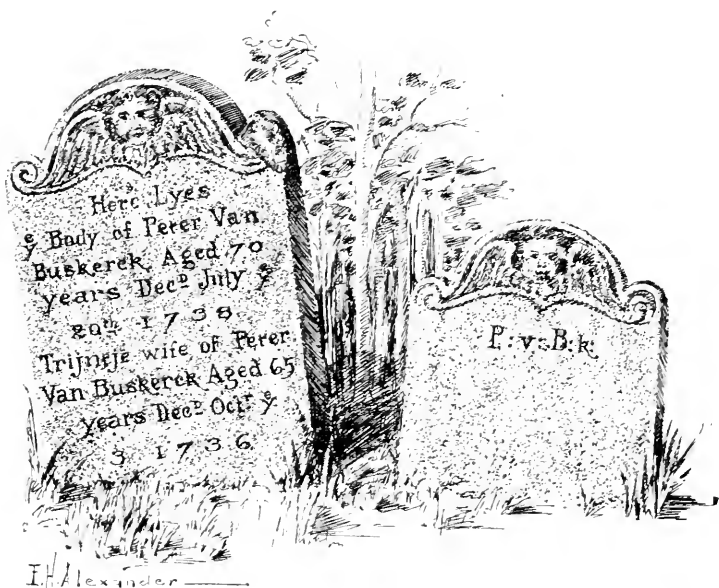 Here Lyes
yᵉ Body of Peter Van
Buskerck Aged 70
years Decᴰ July yᵉ
20th 1738
Trijntje wife of Peter
Van Buskerck Aged 65
years Decᴰ Octʳ yᵉ
3 1736
P:v:B:k:
I.H.Alexander